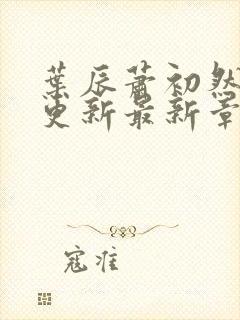 葉辰蕭初然
更新最新章
寇准